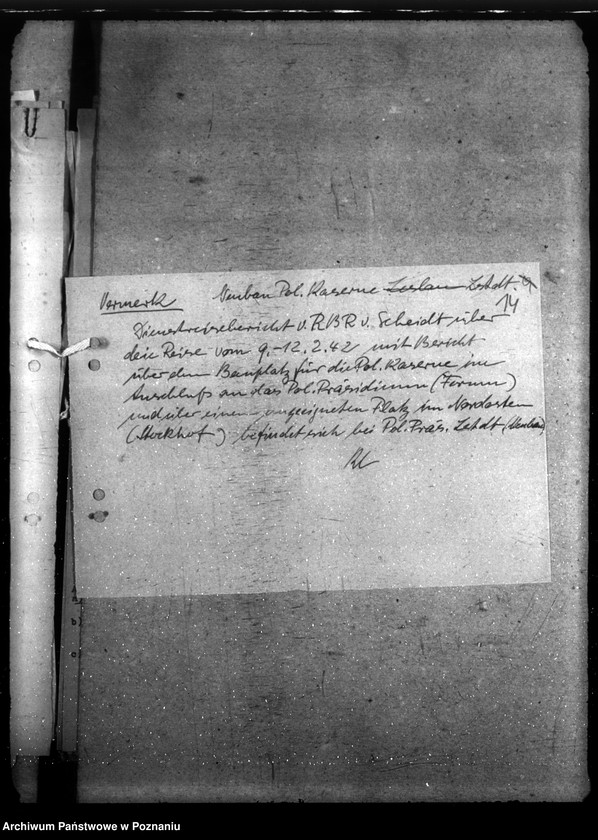 Vermerk Neubau Pol. Kaserne Leslau Lstdt.
14
Dienstreisebericht v. RBR v. Scheidt über
die Reise vom 9.-12.2.42 mit Bericht
über den Bauplatz für die Pol. Kaserne im
Anschluß an das Pol. Präsidium (Forum)
und über einen ungeeigneten Platz im Nordosten
(Stockhof) befindet sich bei Pol. Präs. Lstdt (Neubau)
Archiwum Państwowe w Poznaniu